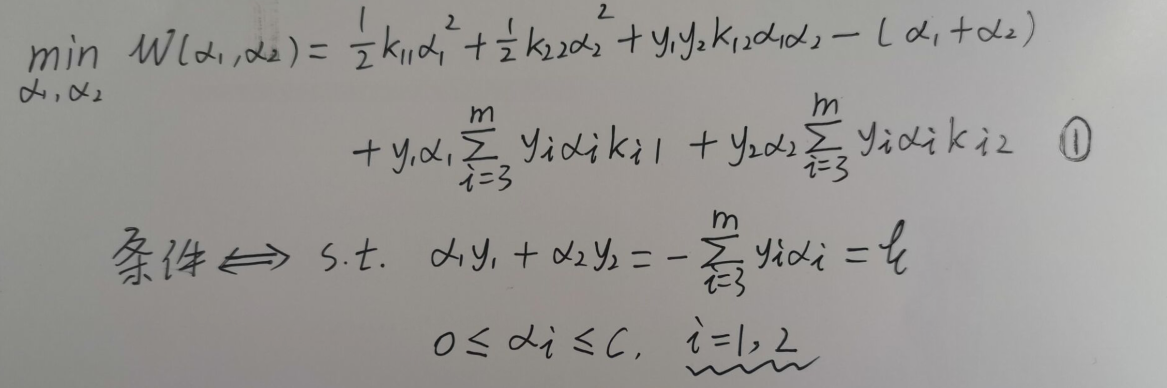 min W(α₁,α₂) = ½k₁₁α₁² + ½k₂₂α₂² + y₁y₂k₁₂α₁α₂ − (α₁+α₂)
α₁,α₂
+ y₁α₁ ∑_{i=3}^{m} yᵢαᵢkᵢ₁ + y₂α₂ ∑_{i=3}^{m} yᵢαᵢkᵢ₂ ①
条件 ⟺ s.t. α₁y₁ + α₂y₂ = −∑_{i=3}^{m} yᵢαᵢ =
0 ≤ αᵢ ≤ C, i=1,2